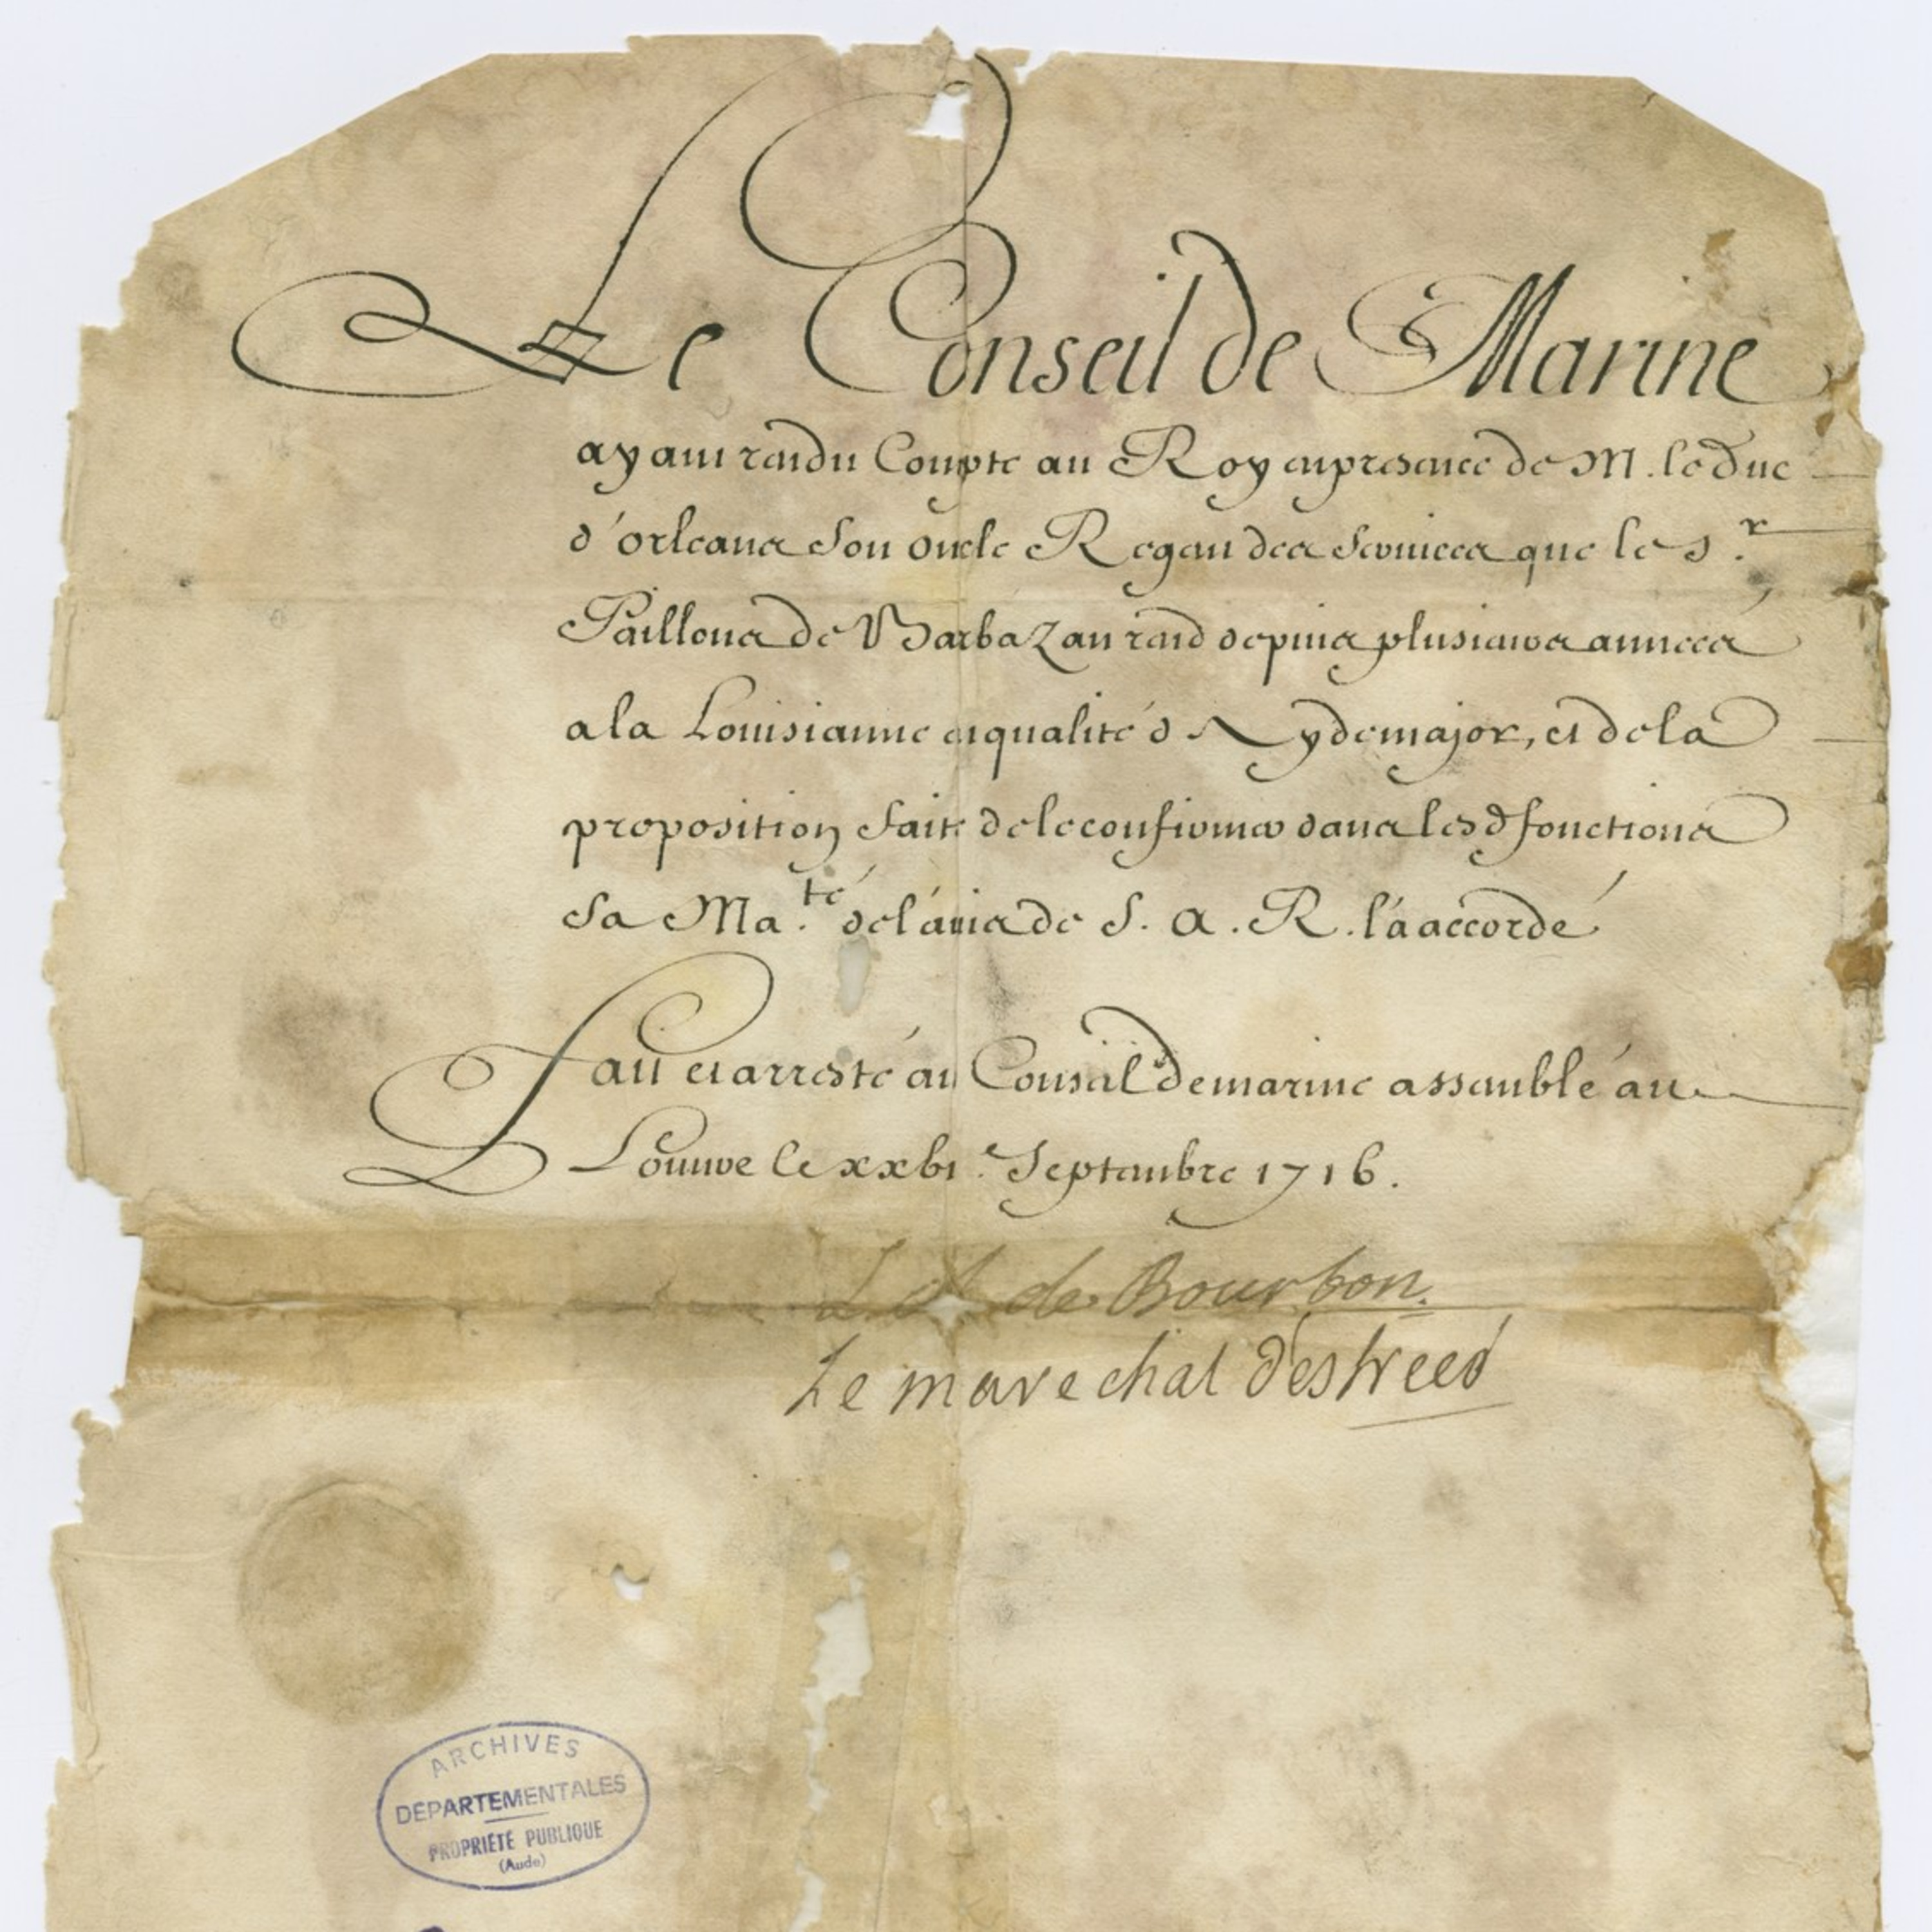 Le Conseil de Marine
ayant rendu Compte au Roy en presence de M. le Duc
d'orleans Son oncle Regent des Services que le S.r
Pailloux de Barbazan rend depuis plusieurs années
a la Louisianne en qualité d'Aydemajor, et de la
proposition faite de le confirmer dans lesd. fonctions
Sa Ma.té de l'avis de S. A. R. l'a accordé
Fait et arresté au Conseil de marine assemblé au
Louvre le xxbi.e Septembre 1716.
L A de Bourbon.
Le marechal d'estrees
ARCHIVES
DEPARTEMENTALES
PROPRIÉTÉ PUBLIQUE
(Aude)